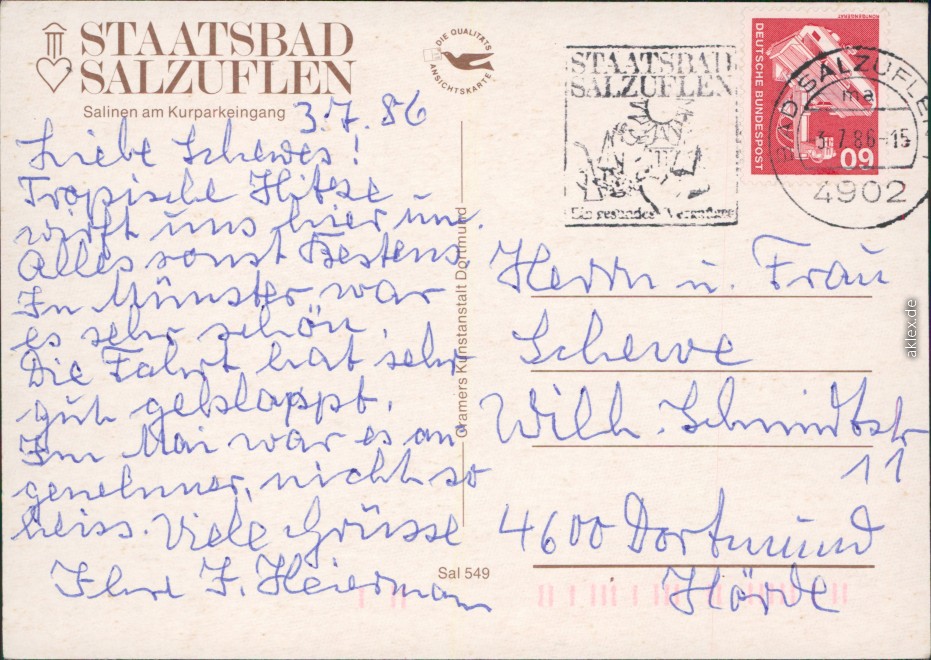 STAATSBAD
SALZUFLEN
Salinen am Kurparkeingang
DIE QUALITÄTS
ANSICHTSKARTE
3.7.86
Liebe Schewes!
Tropische Hitze
wirft uns hier um.
Alles sonst Bestens.
In Münster war
es sehr schön.
Die Fahrt hat sehr
gut geklappt.
Im Mai war es an
genehmer, nicht so
heiss. Viele Grüsse
Ihre F. Heiermann
Cramers Kunstanstalt Dortmund
Sal 549
STAATSBAD
SALZUFLEN
Ein gesundes Vergnügen
DEUTSCHE BUNDESPOST
RÖNTGENGERÄT
60
BAD SALZUFLEN 1
ma
3.7.86-15
4902
Herrn u. Frau
Schewe
Wilh. Schmidtstr
11
4600 Dortmund
Hörde
aklex.de